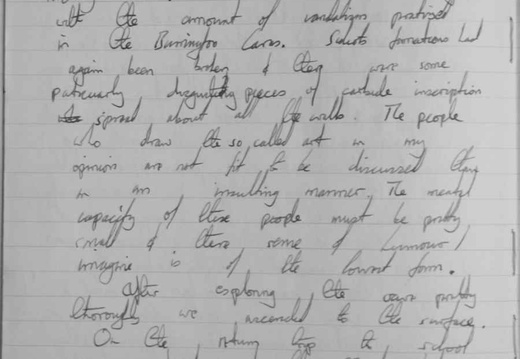 with the amount of vandalism practised
in the Burrington Caves. Scouts formations had
again been broken & they were some
particularly disgusting pieces of carbide inscription
spread about all the walls. The people
who draw the so called art in my
opinion are not fit to be discussed
in an insulting manner. The mental
capacity of these people must be pretty
small & there sense of humour I
imagine is of the lowest form.
After exploring the cave pretty
thoroughly we ascended to the surface.
On the return trip to school